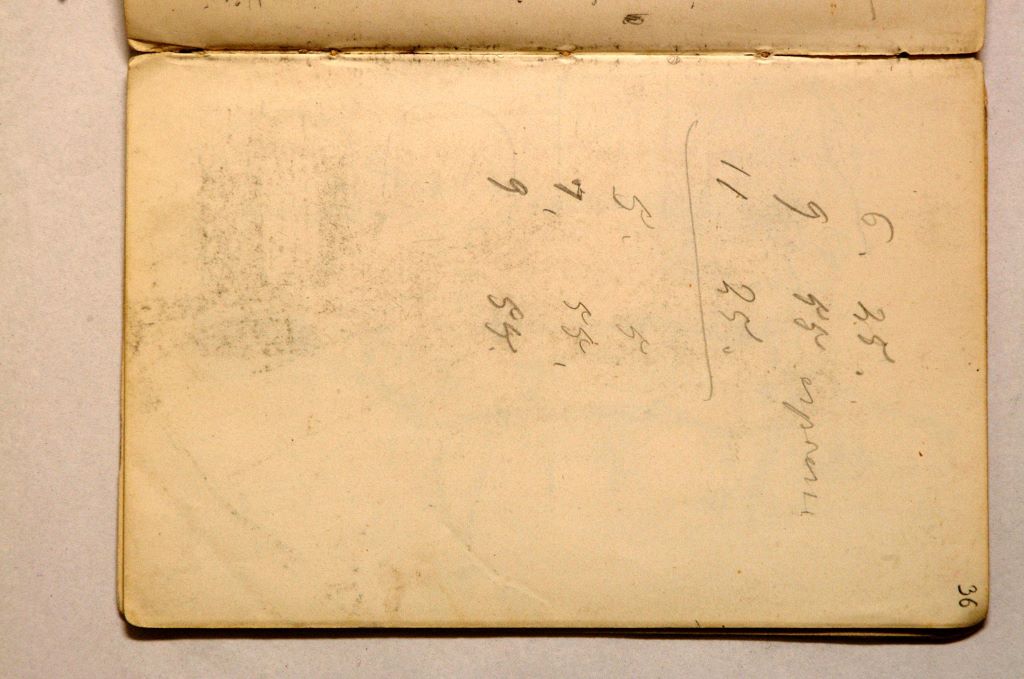 36
6. 25.
9 55
11 25.
5. 5
7. 55.
9 55.